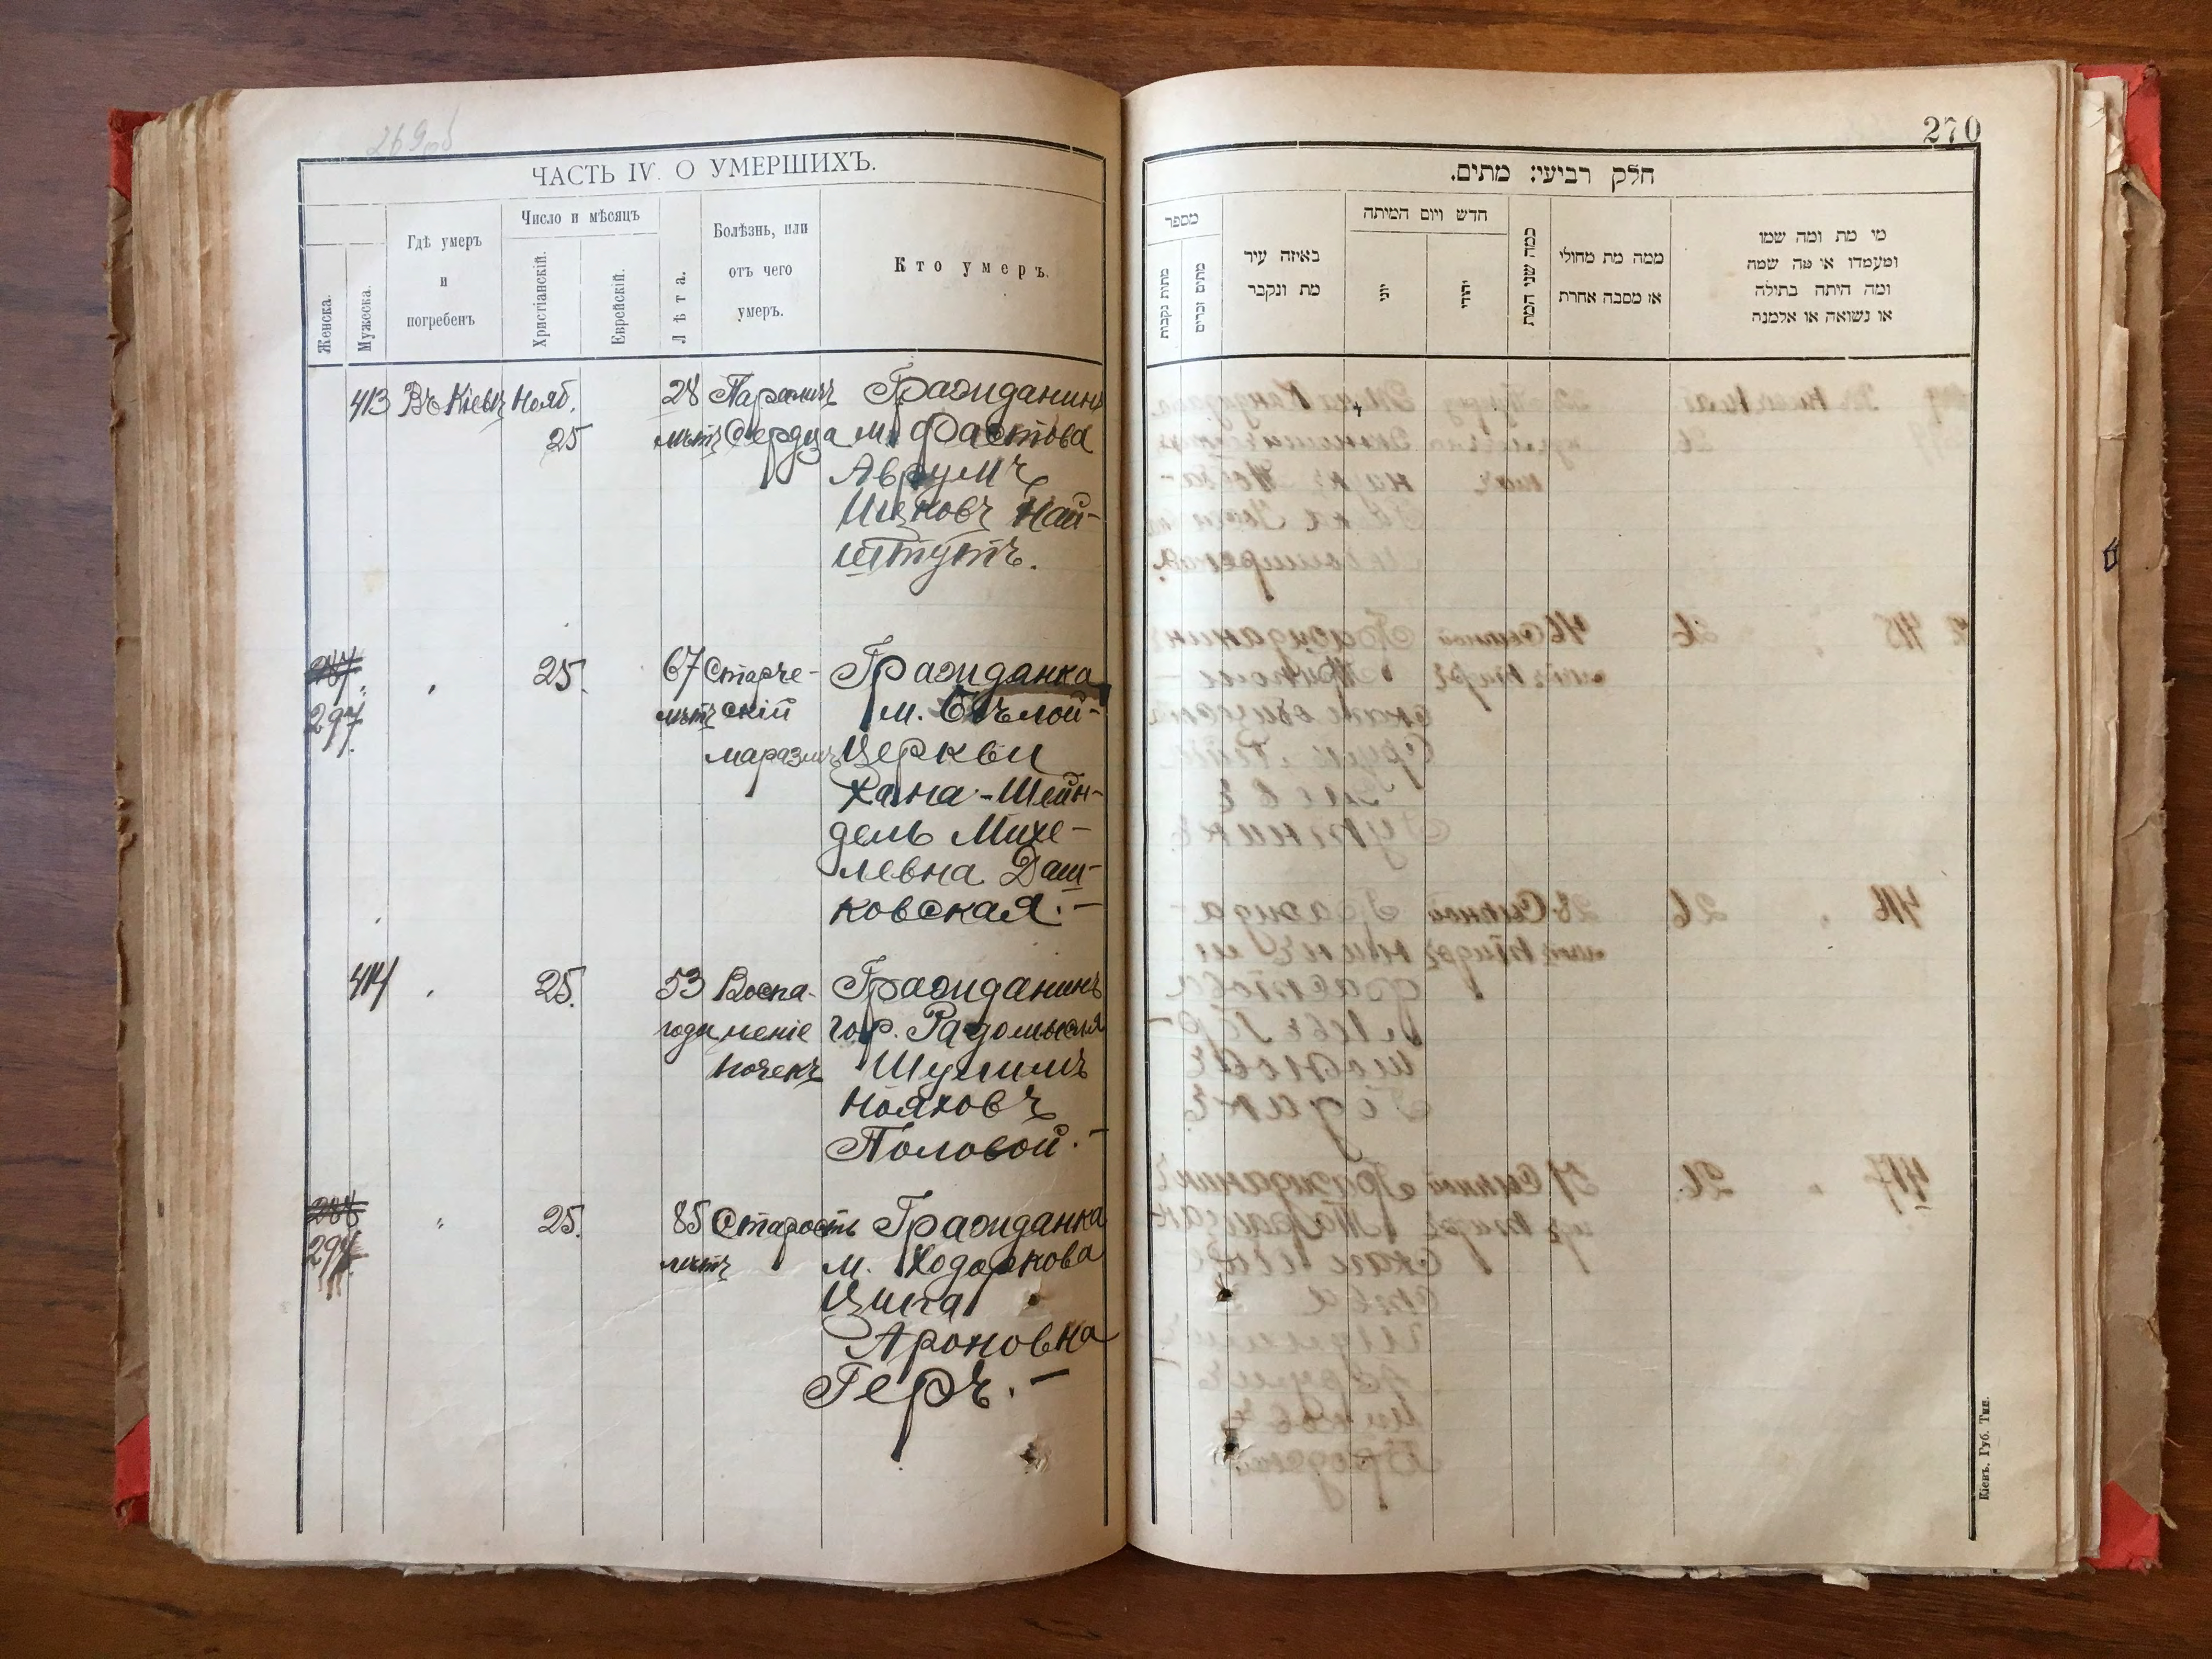 269об
ЧАСТЬ IV. О УМЕРШИХЪ.
Женска.
Мужеска.
Гдѣ умеръ
и
погребенъ
Число и мѣсяцъ
Христіанскій.
Еврейскій.
Лѣта.
Болѣзнь, или
отъ чего
умеръ.
Кто умеръ.
413 Въ Кіевѣ Нояб. 28 Параличъ Гражданинъ
25 лѣтъ Сердца м. Фастова
Аврумъ
Ицковъ Най-
штутъ.
287 " 25. 67 Старче- Гражданка
297 лѣтъ скій м. Бѣлой-
маразмъ Церкви
Хана-Шейн-
дель Михе-
левна Даш-
ковская.-
414 " 25. 53 Воспа- Гражданинъ
года леніе гор. Радомысля
почекъ Шулимъ
Нояховъ
Половой.-
288 " 25. 85 Старость Гражданка
298 лѣтъ м. Ходоркова
Ципа
Ароновна
Геръ.-
270
חלק רביעי: מתים.
מספר
מתות נקבות
מתים זכרים
באיזה עיר
מת ונקבר
חדש ויום המיתה
יוני
יהודי
כמה שני המת
ממה מת מחולי
או מסבה אחרת
מי מת ומה שמו
ומעמדו או מה שמה
ומה היתה בתולה
או נשואה או אלמנה
Кіевъ. Губ. Тип.